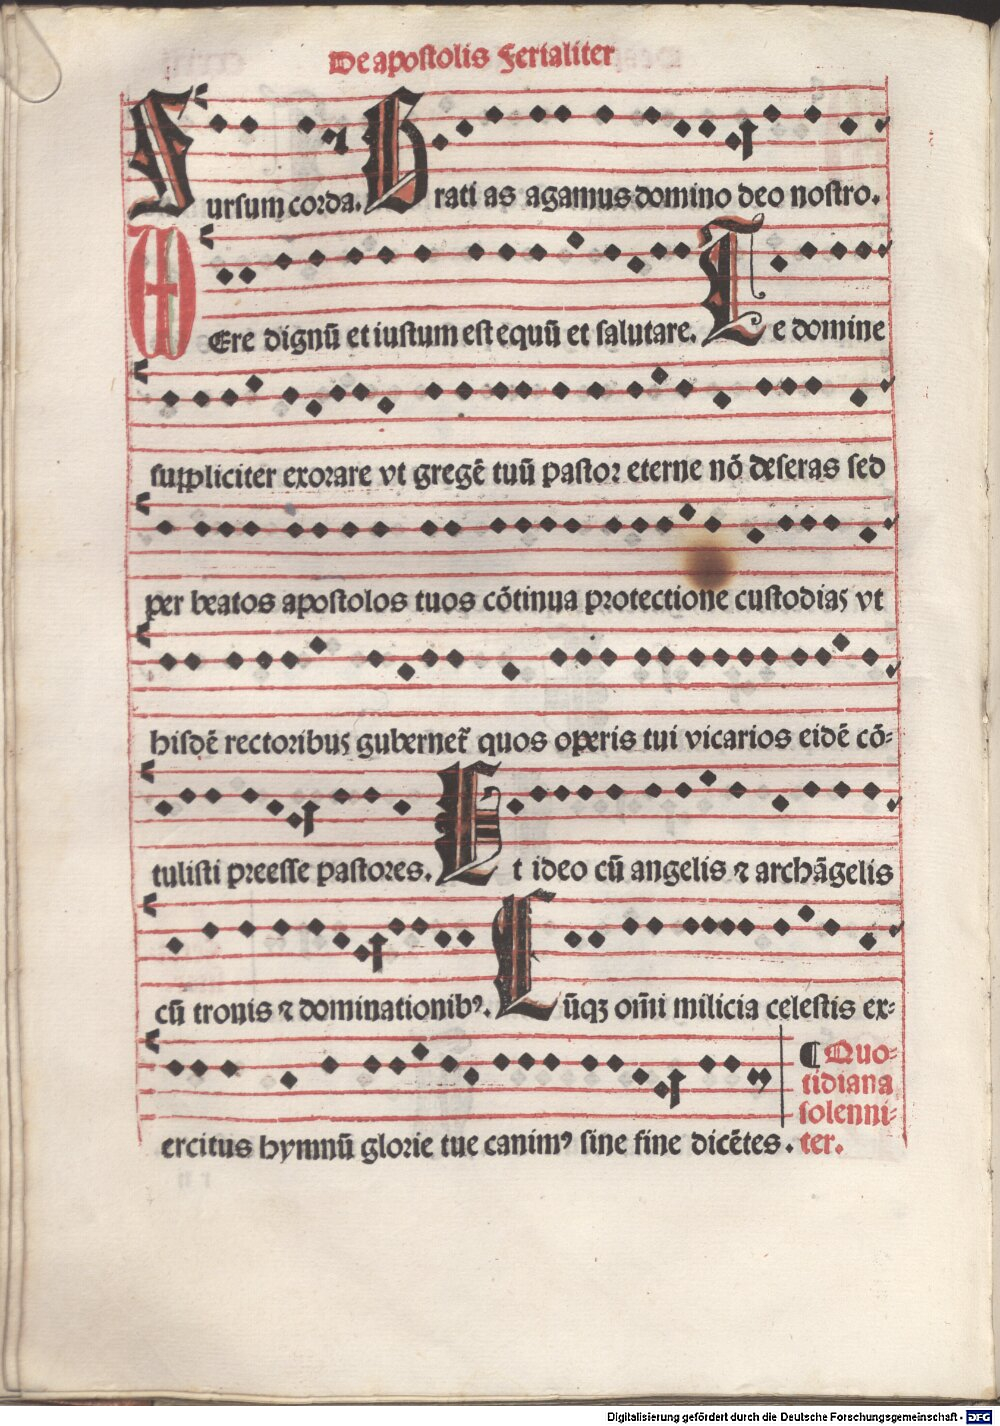 De apostolis Ferialiter
Sursum corda. Grati as agamus domino deo nostro.
VEre dignũ et iustum est equũ et salutare. Te domine
suppliciter exorare vt gregẽ tuũ pastor eterne nõ deseras sed
per beatos apostolos tuos cõtinua protectione custodias vt
hisdẽ rectoribus gubernet᷑ quos operis tui vicarios eidẽ cõ⸗
tulisti preesse pastores. Et ideo cũ angelis ⁊ archãgelis
cũ tronis ⁊ dominationibꝰ. Cũqꝫ om̃i milicia celestis ex⸗
¶ Quo⸗
tidiana
solenni⸗
ercitus hymnũ glorie tue canimꝰ sine fine dicẽtes. ter.
Digitalisierung gefördert durch die Deutsche Forschungsgemeinschaft - DFG